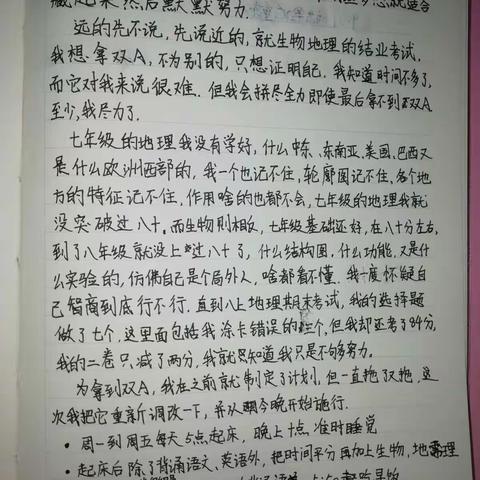 藏起来然后默默努力.
远的先不说,先说近的,就生物地理的结业考试,
我想拿双A,不为别的,只想证明自己,我知道时间不多了,
而它对我来说很难.但我会拼尽全力即使最后拿不到双A
至少,我尽力了.
七年级的地理我没有学好,什么中东、东南亚、美国、巴西又
是什么欧洲西部的,我一个也记不住,轮廓图记不住,各个地
方的特征记不住,作用啥的也都不会,七年级的地理我就
没突破过八十.而生物则相反,七年级基础还好,在八十分左右,
到了八年级就没上过八十了,什么结构图,什么功能,又是什
么实验的,仿佛自己是个局外人,啥都看不懂.我一度怀疑自
己智商到底行不行.直到八上地理期末考试,我的选择题
做了七个,这里面包括我涂卡错误的三个,但我却还考了84分,
我的二卷只减了两分,我就知道我只是不够努力.
为拿到双A,我在之前就制定了计划,但一直拖了又拖,这
次我把它重新调改一下,并从今晚开始施行.
• 周一到周五每天5点起床,晚上十点准时睡觉
• 起床后除了背诵语文、英语外,把时间平分再加上生物,地理